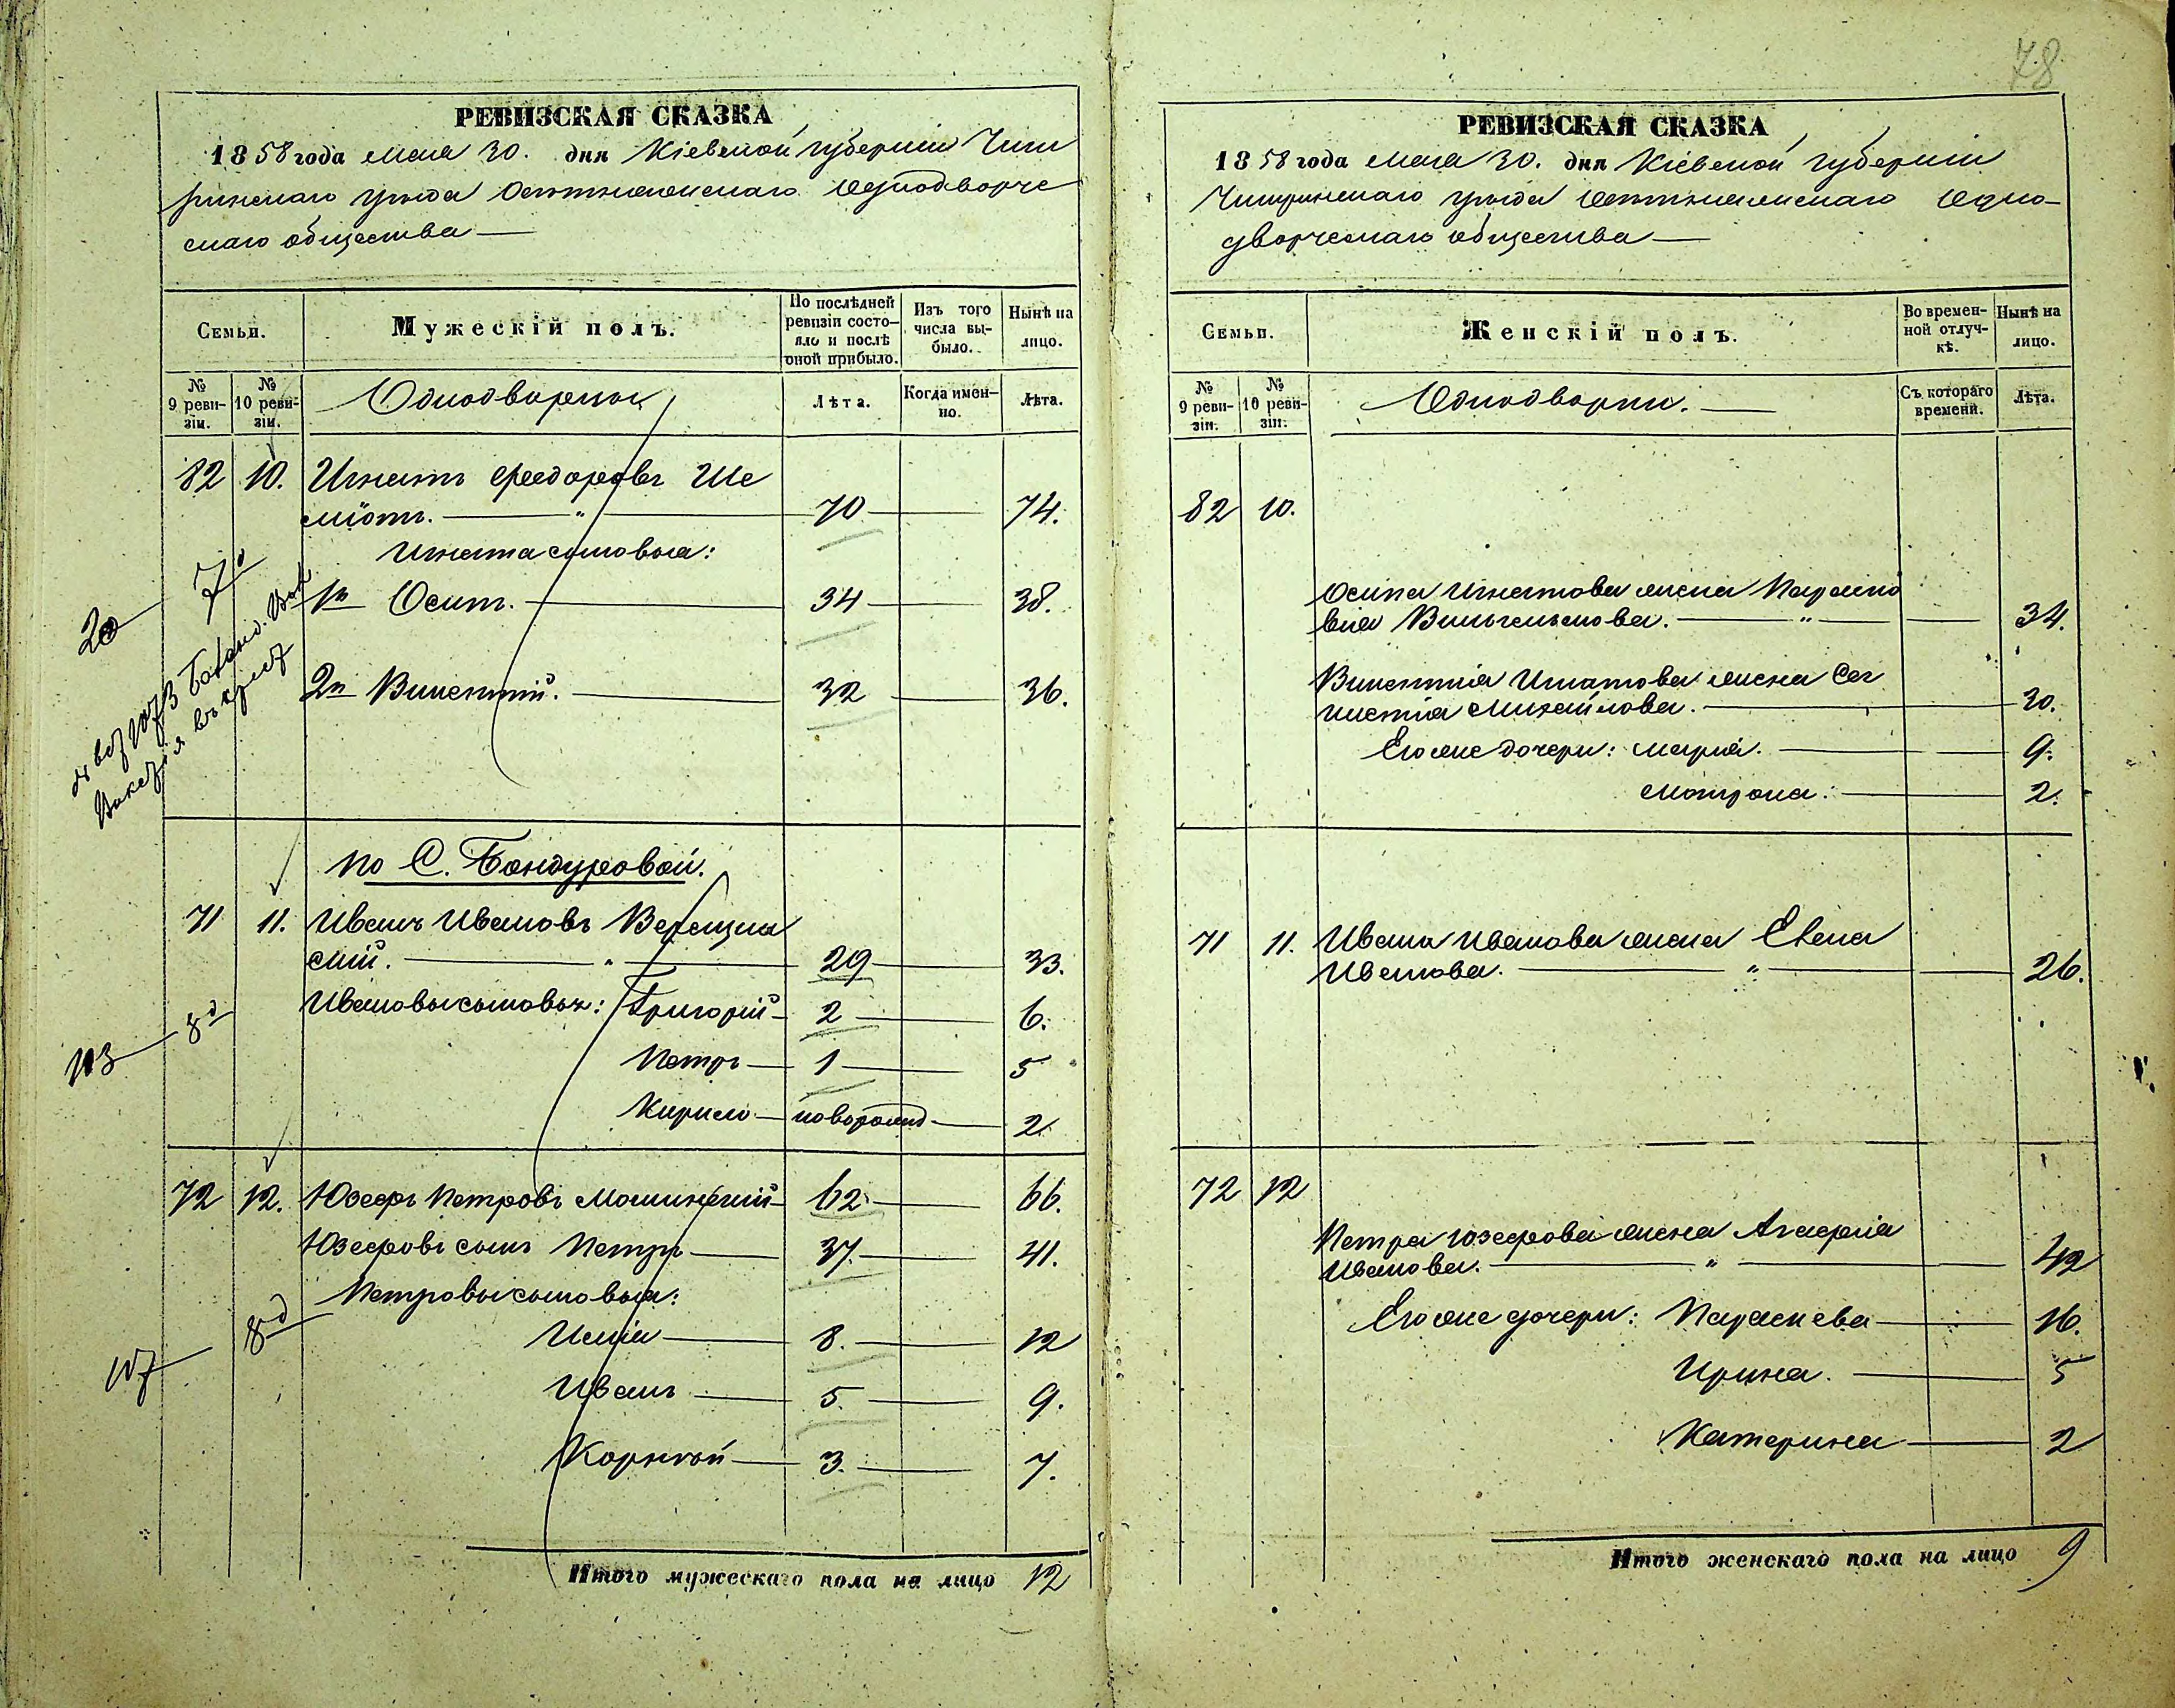 78
РЕВИЗСКАЯ СКАЗКА
1858 года Мая 30. дня Кіевской губерніи Чиги
ринскаго уѣзда Однодворче
скаго общества —
Семьи.
Мужескій полъ.
По послѣдней ревизіи состо-
яло и послѣ
оной прибыло.
Изъ того
числа вы-
было.
Нынѣ на
лицо.
№
9 реви-
зіи.
№
10 реви-
зіи.
Однодворцы
Лѣта.
Когда имен-
но.
Лѣта.
82 10. Игнатъ Феодоровъ Ше
міотъ. — " — 70 — 74.
Игната сыновья:
1й Осипъ. — 34 — 38.
2й Викентій. — 32 — 36.
20 7
По С. Бондуровой.
71 11. Иванъ Ивановъ Верещин
скій. — " — 29 — 33.
Ивановы сыновья: Григорій — 2 — 6.
Петръ — 1 — 5
Кирило — новорожд — 2
103 8д
72 12. Юзефъ Петровъ Мошинскій — 62 — 66.
Юзефовъ сынъ Петръ — 37. — 41.
Петровы сыновья:
8д
Илія — 8. — 12
107
Иванъ — 5. — 9.
Корнѣй — 3. — 7.
Итого мужескаго пола на лицо 12
РЕВИЗСКАЯ СКАЗКА
1858 года Мая 30. дня Кіевской губерніи
Чигиринскаго уѣзда Одно-
дворческаго общества —
Семьи.
Женскій полъ.
Во времен-
ной отлуч-
кѣ.
Нынѣ на
лицо.
№
9 реви-
зіи.
№
10 реви-
зіи.
Однодворки. —
Съ котораго
времени.
Лѣта.
82 10.
Осипа Игнатова жена Параско
вія Вильгельмова. — " — 34.
Викентія Игнатова жена
Михайлова. — 30.
Его же дочери: Марія. — 9.
Матрона. — 2.
71 11. Ивана Иванова жена Елена
Иванова. — " — 26.
72 12
Петра Юзефова жена Агафія
Иванова. — " — 42
Его же дочери: Параскева — 16.
Ирина. — 5
Катерина — 2
Итого женскаго пола на лицо 9